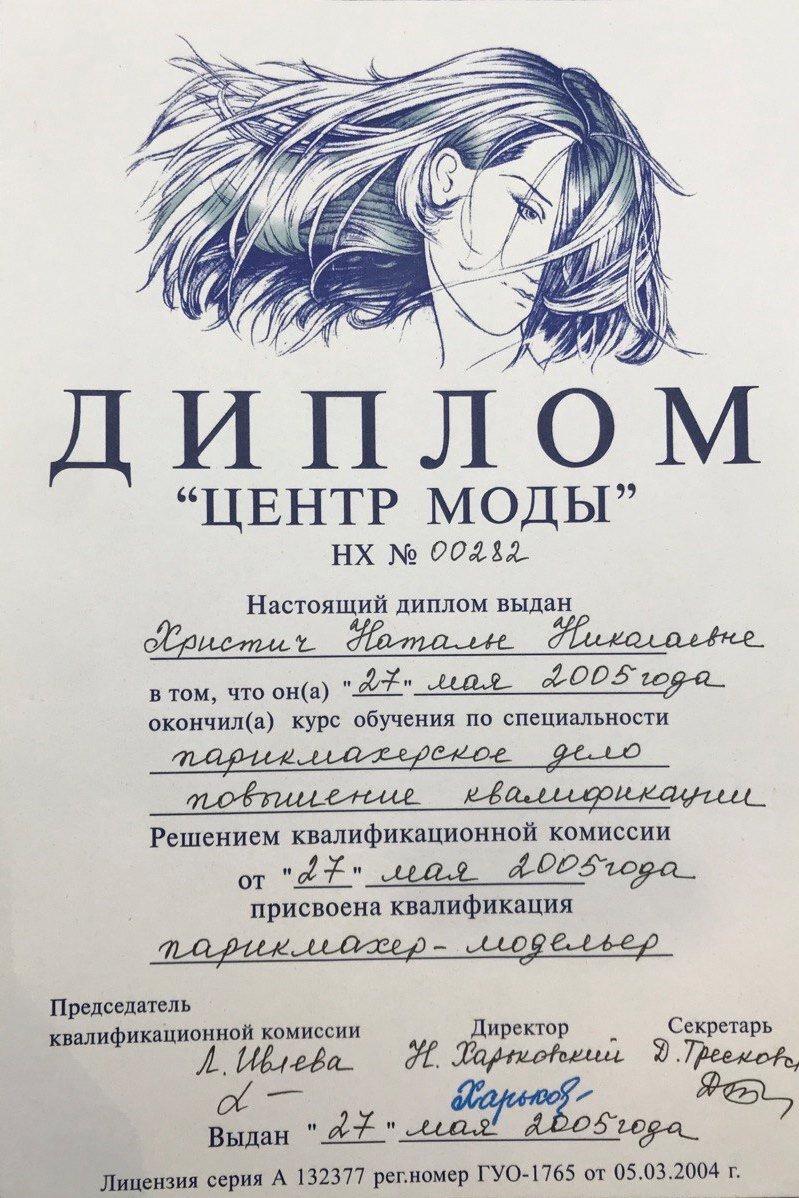 ДИПЛОМ
“ЦЕНТР МОДЫ”
НХ № 00282
Настоящий диплом выдан
Христич Наталье Николаевне
в том, что он(а) "27" мая 2005 года
окончил(а) курс обучения по специальности
парикмахерское дело
повышение квалификации
Решением квалификационной комиссии
от "27" мая 2005 года
присвоена квалификация
парикмахер-модельер
Председатель
квалификационной комиссии Директор Секретарь
Л. Ивлева Н. Харьковский Д.
Харьков
Выдан "27" мая 2005 года
Лицензия серия А 132377 рег.номер ГУО-1765 от 05.03.2004 г.